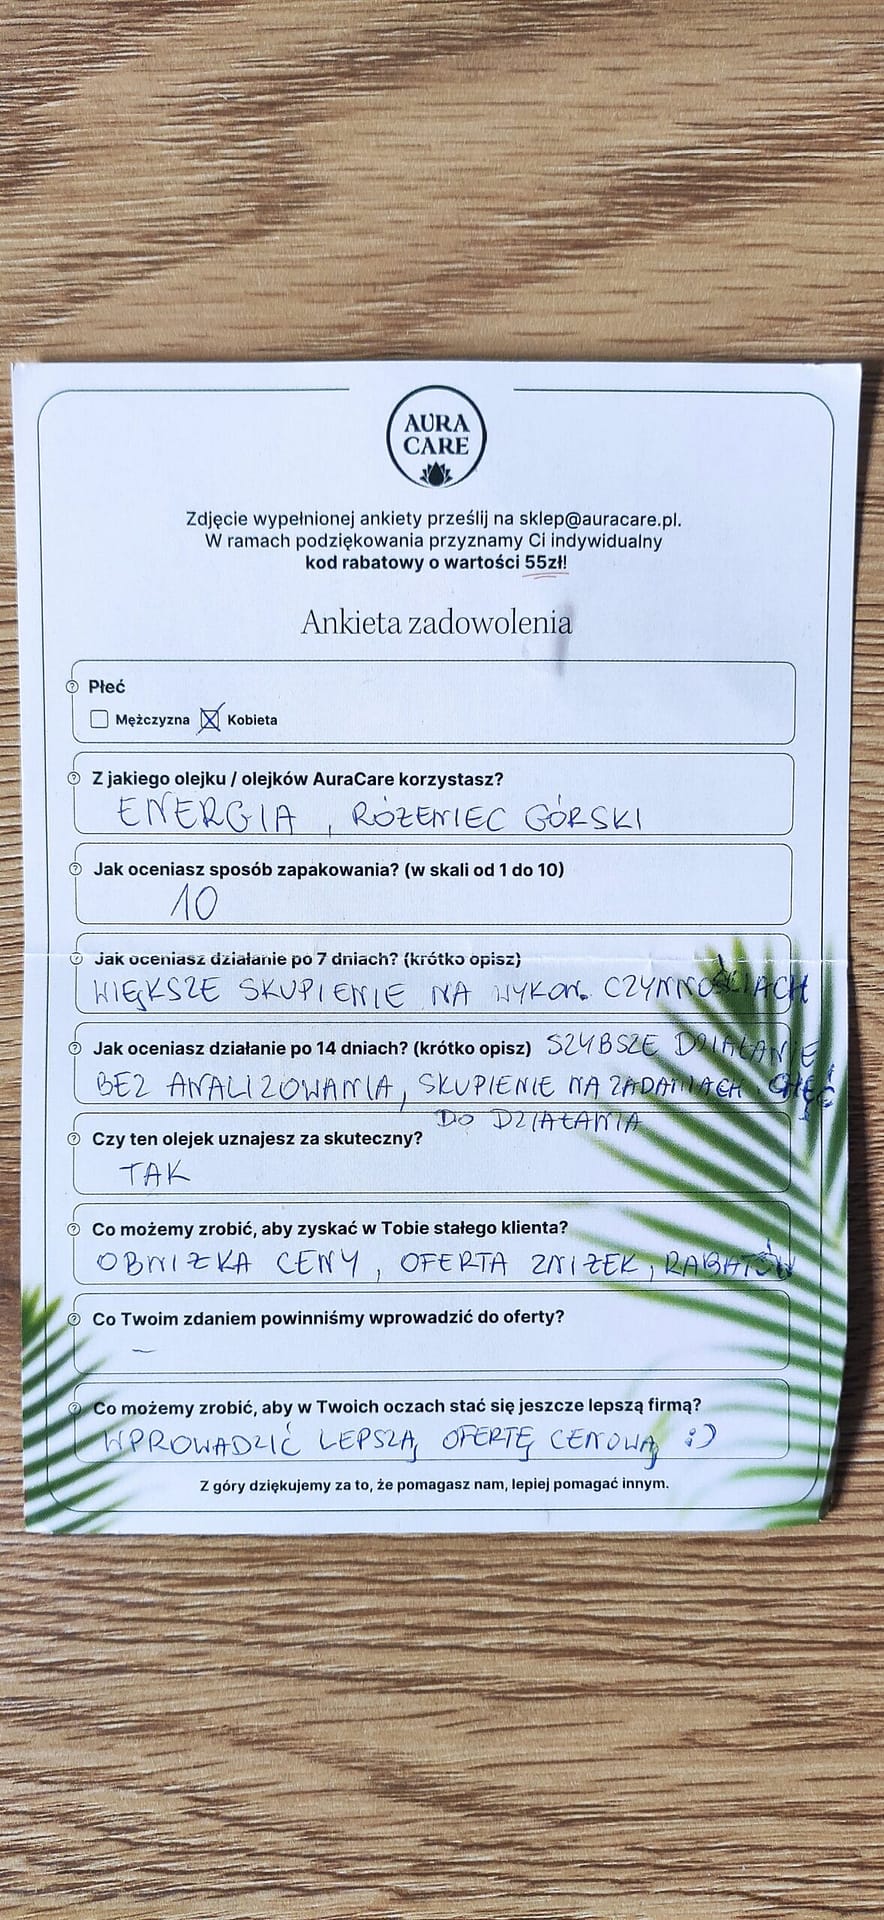 AURA
CARE
Zdjęcie wypełnionej ankiety prześlij na sklep@auracare.pl.
W ramach podziękowania przyznamy Ci indywidualny
kod rabatowy o wartości 55zł!
Ankieta zadowolenia
Płeć
Mężczyzna Kobieta
Z jakiego olejku / olejków AuraCare korzystasz?
ENERGIA, RÓŻENIEC GÓRSKI
Jak oceniasz sposób zapakowania? (w skali od 1 do 10)
10
Jak oceniasz działanie po 7 dniach? (krótko opisz)
WIĘKSZE SKUPIENIE NA WYKON. CZYNNOŚCIACH
Jak oceniasz działanie po 14 dniach? (krótko opisz) SZYBSZE DZIAŁANIE
BEZ ANALIZOWANIA, SKUPIENIE NA ZADANIACH, CHĘĆ
DO DZIAŁANIA
Czy ten olejek uznajesz za skuteczny?
TAK
Co możemy zrobić, aby zyskać w Tobie stałego klienta?
OBNIŻKA CENY, OFERTA ZNIŻEK, RABATÓW
Co Twoim zdaniem powinniśmy wprowadzić do oferty?
–
Co możemy zrobić, aby w Twoich oczach stać się jeszcze lepszą firmą?
WPROWADZIĆ LEPSZĄ OFERTĘ CENOWĄ :)
Z góry dziękujemy za to, że pomagasz nam, lepiej pomagać innym.